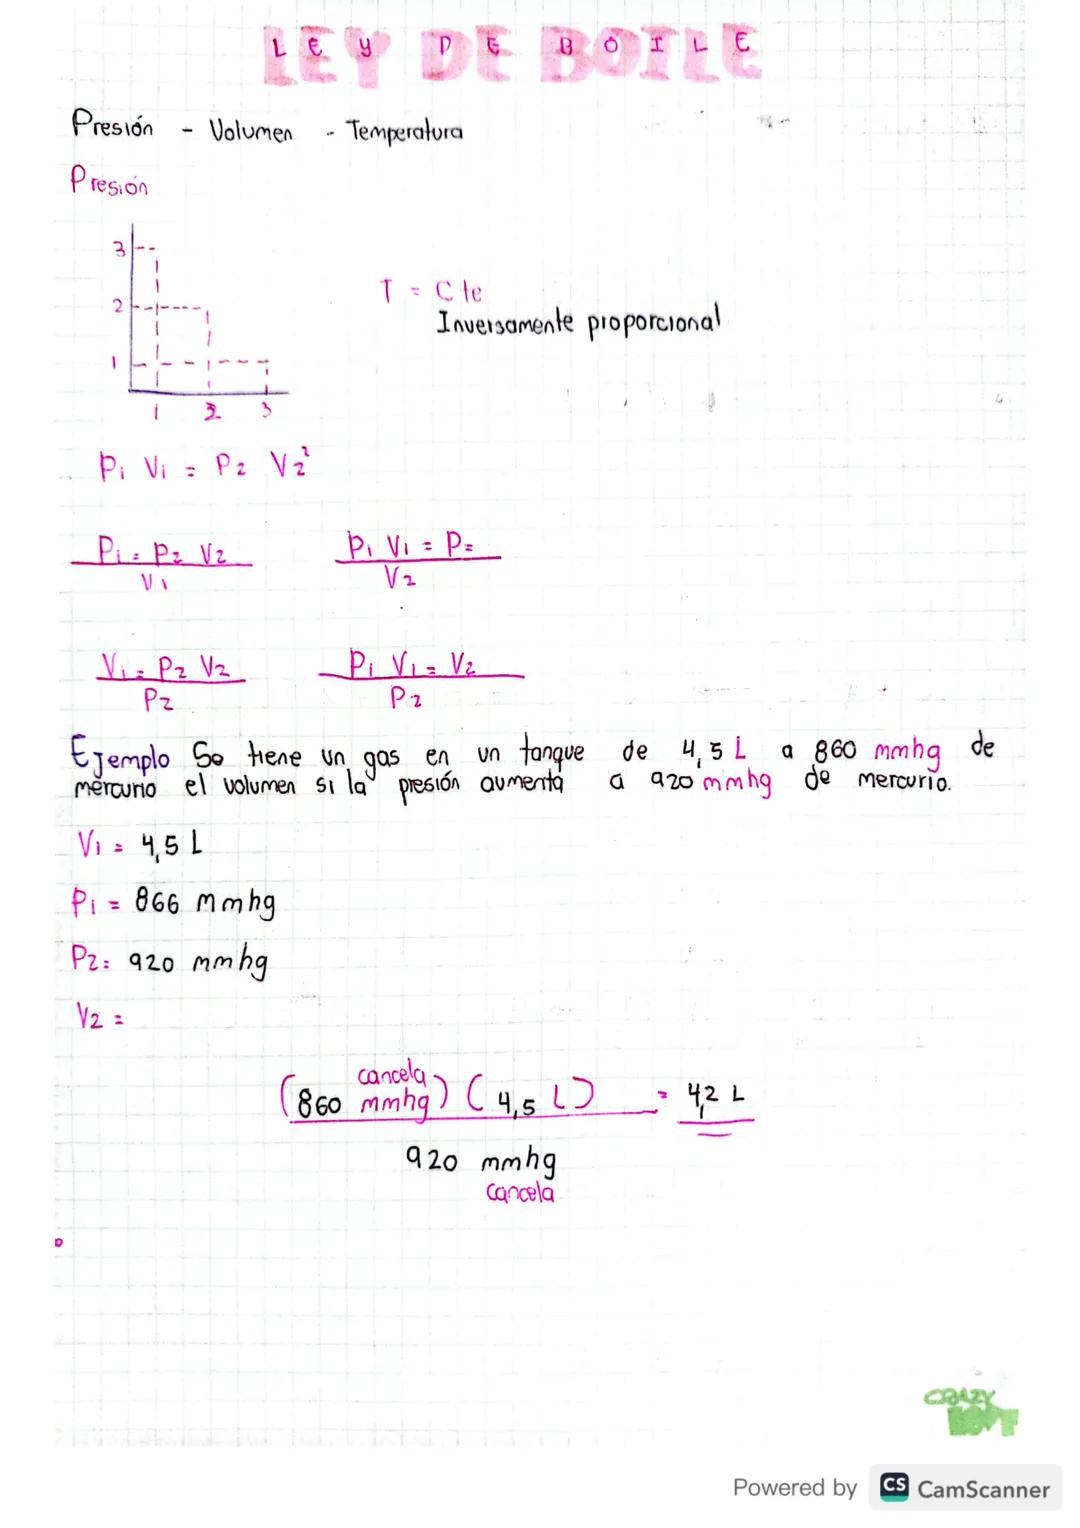 LEY DE BOILE
Presión - Volumen - Temperatura
Presión
3
2
1
1 2 3
T = Cte
Inversamente proporcional
P1 V1 = P2 V2²
P1 = P2 V2
V1
P1 V1 = P=
V2
V1 = P2 V2
P2
P1 V1 = V2
P2
Ejemplo Se tiene un gas en un tanque de 4,5 L a 860 mmhg de
mercurio el volumen si la presión aumenta a 920 mmhg de mercurio.
V1 = 4,5 L
P1 = 866 mmhg
P2: 920 mmhg
V2 =
cancela
(860 mmhg) (4,5 L) = 4,2 L
920 mmhg
cancela
CRAZY
Powered by CS CamScanner